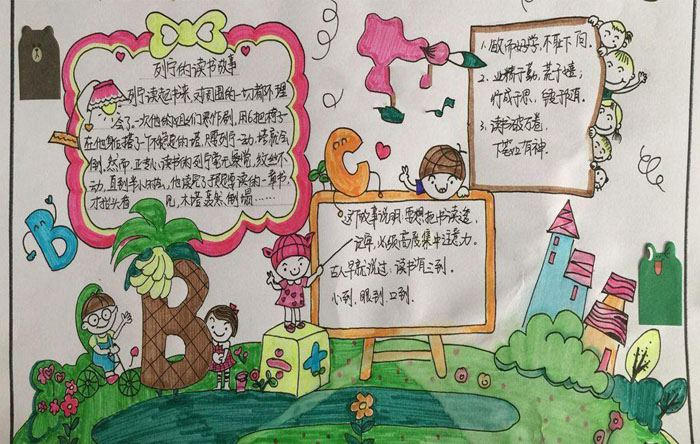 列宁的读书故事
列宁读起书来,对周围的一切都不理
会了。一次他的姐姐们恶作剧,用6把椅子
在他身后搭了一个不稳定的塔,只要列宁一动,塔就会
倒,然而,正专心读书的列宁毫无察觉,纹丝不
动,直到半小时后,他读完了预定要读的一章书,
才抬头看 见,木塔轰然倒塌……
B
C
B
÷
+
这个故事说明:要想把书读透,
记牢,必须高度集中注意力。
古人早就说过:读书有三到。
心到、眼到、口到。
1、敏而好学,不耻下问。
2、业精于勤,荒于嬉;
行成于思,毁于随。
3、读书破万卷,
下笔如有神。